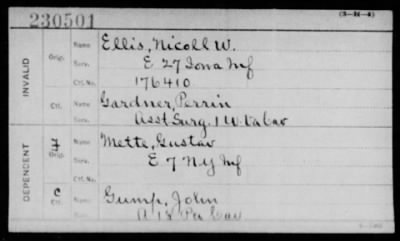 230501
(3-21-6)
INVALID
Orig.
Name Ellis, Nicoll W.
Serv. E 27 Iowa Inf
Ctf. No. 176410
Ctf. Name Gardner, Perrin
Asst Surg. 1 W. Va Cav
DEPENDENT
F
Orig.
Name Mette, Gustav
Serv. E 7 N.Y. Inf
Ctf. No.
C
Ctf.
Name Gump, John
Serv. A 18 Pa Cav